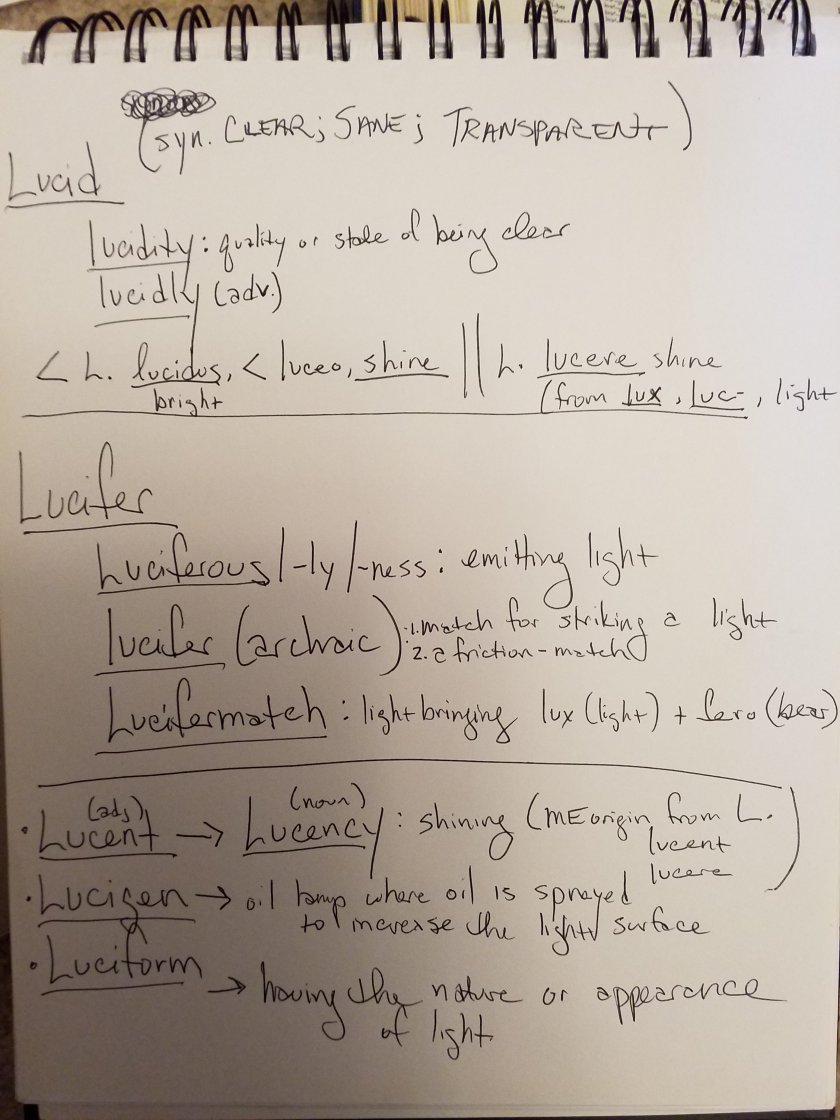 (syn. CLEAR; SANE; TRANSPARENT)
Lucid
lucidity: quality or state of being clear
lucidly (adv.)
< L. lucidus, < luceo, shine || L. lucere shine
bright (from lux, luc-, light
Lucifer
Luciferous/-ly/-ness: emitting light
lucifer (archaic): 1. match for striking a light
2. a friction-match
Lucifermatch: light bringing lux (light) + fero (bear)
(adj) (noun)
· Lucent → Lucency: shining (ME origin from L.
lucent
lucere)
· Lucigen → oil lamp where oil is sprayed
to increase the light surface
· Luciform
→ having the nature or appearance
of light